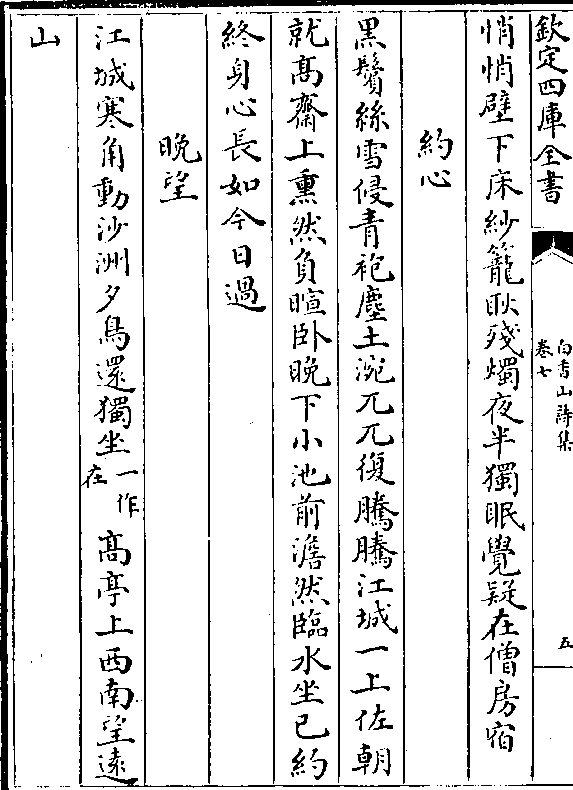 欽定四庫全書
白香山詩集
卷七
五
悄悄壁下床紗籠耿殘燭夜半獨眠覺疑在僧房宿
約心
黑鬢絲雪侵青袍塵土涴兀兀復騰騰江城一上佐朝
就髙齋上熏然負暄卧晚下小池前澹然臨水坐已約
終身心長如今日過
晚望
江城寒角動沙洲夕鳥還獨坐一作在髙亭上西南望遠
山